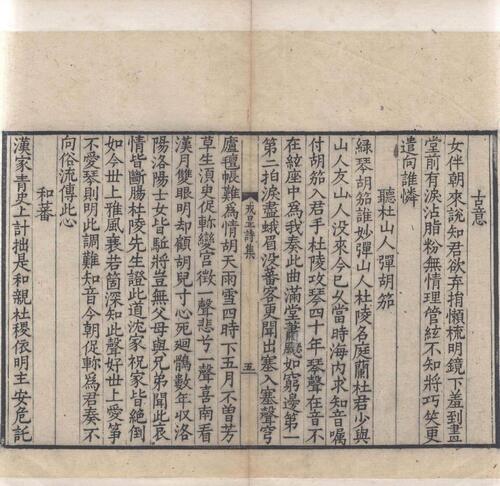 古意
女伴朝來說知君欲弃捐懶梳明鏡下羞到畫
堂前有淚沾脂粉無情理管絃不知將巧笑更
遣向誰憐
聽杜山人彈胡笳
綠琴胡笳誰妙彈山人杜陵名庭蘭杜君少與
山人友山人没來今已久當時海内求知音囑
付胡笳入君手杜陵攻琴四十年琴聲在音不
在絃座中為我奏此曲滿堂蕭颯如窮邊第一
第二拍淚盡蛾眉没蕃客更聞出塞入塞聲穹
戎昱詩集
五
廬氊帳難為情胡天雨雪四時下五月不曾芳
草生須臾促軫變宮徵一聲悲兮一聲喜南看
漢月雙眼明却顧胡兒寸心死迴鶻數年收洛
陽洛陽士女皆駈將豈無父母與兄弟聞此哀
情皆斷腸杜陵先生證此道沈家祝家皆絕倒
如今世上雅風衰若箇深知此聲好世上愛箏
不愛琴則明此調難知音今朝促軫為君奏不
向俗流傳此心
和蕃
漢家青史上計拙是和親社稷依明主安危託